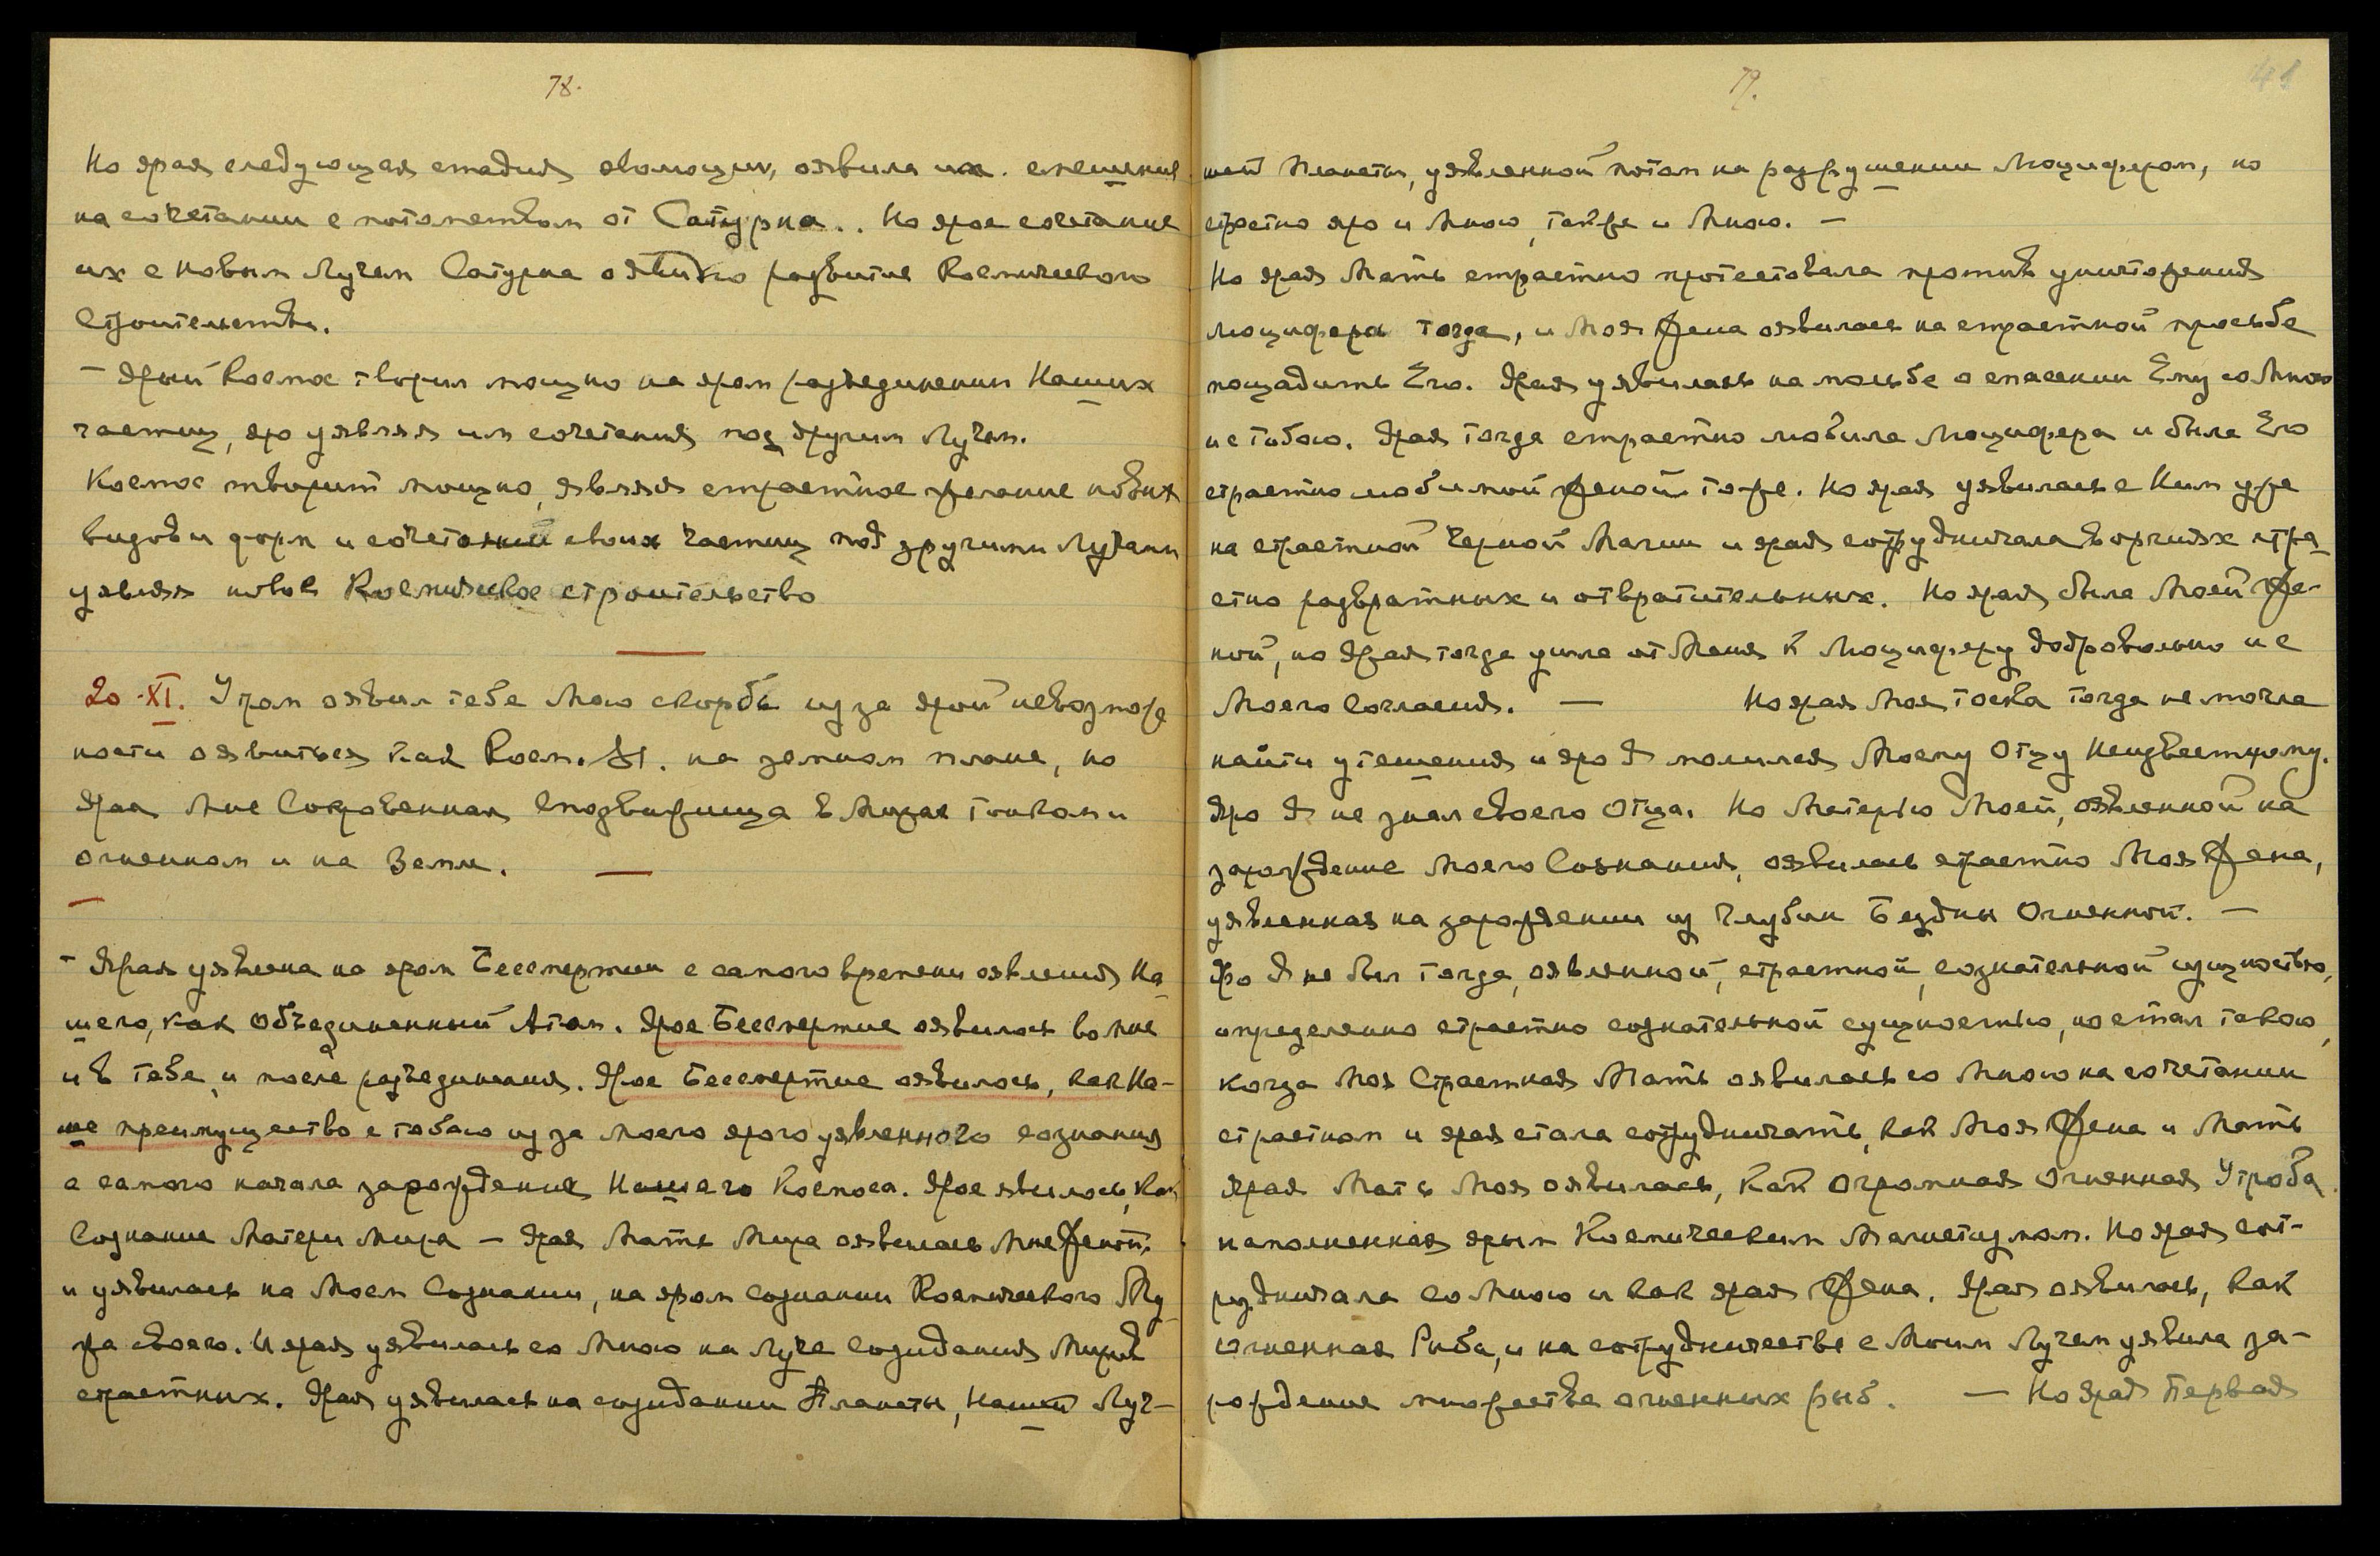 78.
Но ярая следующая стадия эволюции, оявила их смешение
на сочетании с потомством от Сатурна.. Но ярое сочетание
их с новым Лучем Сатурна оявило развитие Космического
Строительства.
— Ярый Космос творил мощно на яром разъединении Наших
частиц, яро уявляя им сочетания под другим Лучем.
Космос творит мощно, являя страстное желание новых
видов и форм и сочетаний своих частиц под другими Лучами
уявляя новое Космическое строительство
20.XI. Утром оявил тебе Мою скорбь из за ярой невозмож
ности оявиться как Косм. на земном плане, но
Ярая Мне Сокровенная Сподвижница в Мирах Тонком и
огненном и на Земле. —
—
— Ярая уявлена на яром Бессмертии с самого времени оявления На
шего, как Объединенный Атом. Ярое Бессмертие оявилось во Мне
и в тебе, и после разъединения. Ярое Бессмертие оявилось, как На-
ше преимущество с тобою из за Моего ярого уявленного сознания
с самого начала зарождения Нашего Космоса. Ярое явилось, как
Сознание Матери Мира — Ярая Мать Мира оявилась Мне Женой.
и уявилась на Моем Сознании, на яром Сознании Космического Му
жа своего. И ярая уявилась со Мною на Луче Созидания Миров
страстных. Ярая уявилась на созидании Планеты, Нашей Луч-
79.
41
шей Планеты, уявленной потом на разрушении Люцифером, но
страстно яро и Мною, также и Мною. —
Но ярая Мать страстно протестовала против уничтожения
Люцифера тогда, и Моя Жена оявилась на страстной просьбе
пощадить Его. Ярая уявилась на мольбе о спасении Ему со Мною
и с тобою. Ярая тогда страстно любила Люцифера и была Его
страстно любимой женой тоже. Но ярая уявилась с Ним уже
на страстной Черной Магии и ярая сотрудничала в оргиях стра
стно развратных и отвратительных. Но ярая была Моей Же-
ной, но Ярая тогда ушла от Меня к Люциферу добровольно и с
Моего Согласия. — Но ярая Моя тоска тогда не могла
найти утешения и яро Я молился Моему Отцу Неизвестному.
Яро Я не знал своего Отца. Но Матерью Моей, оявленной на
зарождение Моего Сознания, оявилась страстно Моя Жена,
уявленная на зарождении из Глубин Бездны Огненной. —
Яро Я не был тогда, оявленной, страстной, сознательной сущностью,
определенно страстно сознательной сущностью, но стал такою,
когда Моя Страстная Мать оявилась со Мною на сочетании
страстном и ярая стала сотрудничать, как Моя Жена и Мать
Ярая Мать Моя оявилась, как Огромная Огненная Утроба
наполненная ярым Космическим Магнетизмом. Но ярая сот-
рудничала со Мною и как ярая Жена. Ярая оявилась, как
огненная Рыба, и на сотрудничестве с Моим Лучем уявила за-
рождение множества огненных рыб. — Но Ярая Первая